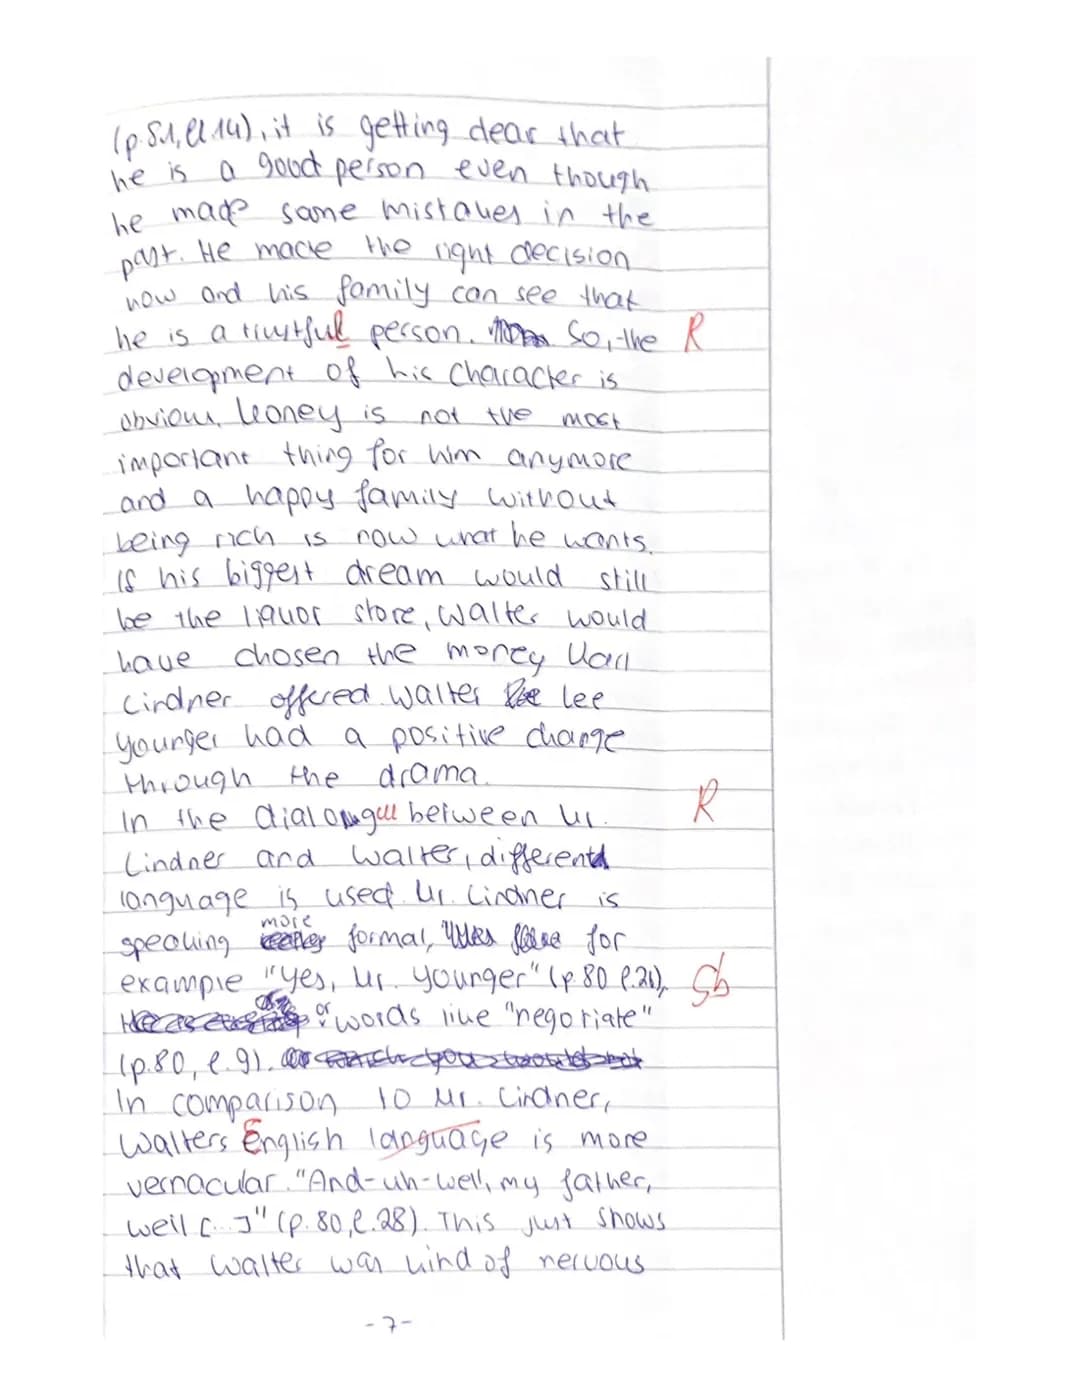 (p.81, l.14), it is getting clear that
he is a good person even though
he made some mistakes in the
past. He made the right decision
now and his family can see that
he is a trustful person. So, the R
development of his character is
obvious. Money is not the most
important thing for him anymore
and a happy family without
being rich is now what he wants.
If his biggest dream would still
be the liquor store, Walter would
have chosen the money Karl
Lindner offered. Walter Lee
Younger had a positive change
through the drama.
In the dialongue between Mr. R
Lindner and Walter, different
language is used. Mr. Lindner is
speaking more formal, for
example "Yes, Mr. Younger" (p.80 l.21), Sb
or words like "negotiate"
(p.80, l.9).
In comparison to Mr. Lindner,
Walters English language is more
vernacular. "And-uh-well, my father,
well [...]" (p.80, l.28). This just shows
that Walter was kind of nervous
-7-